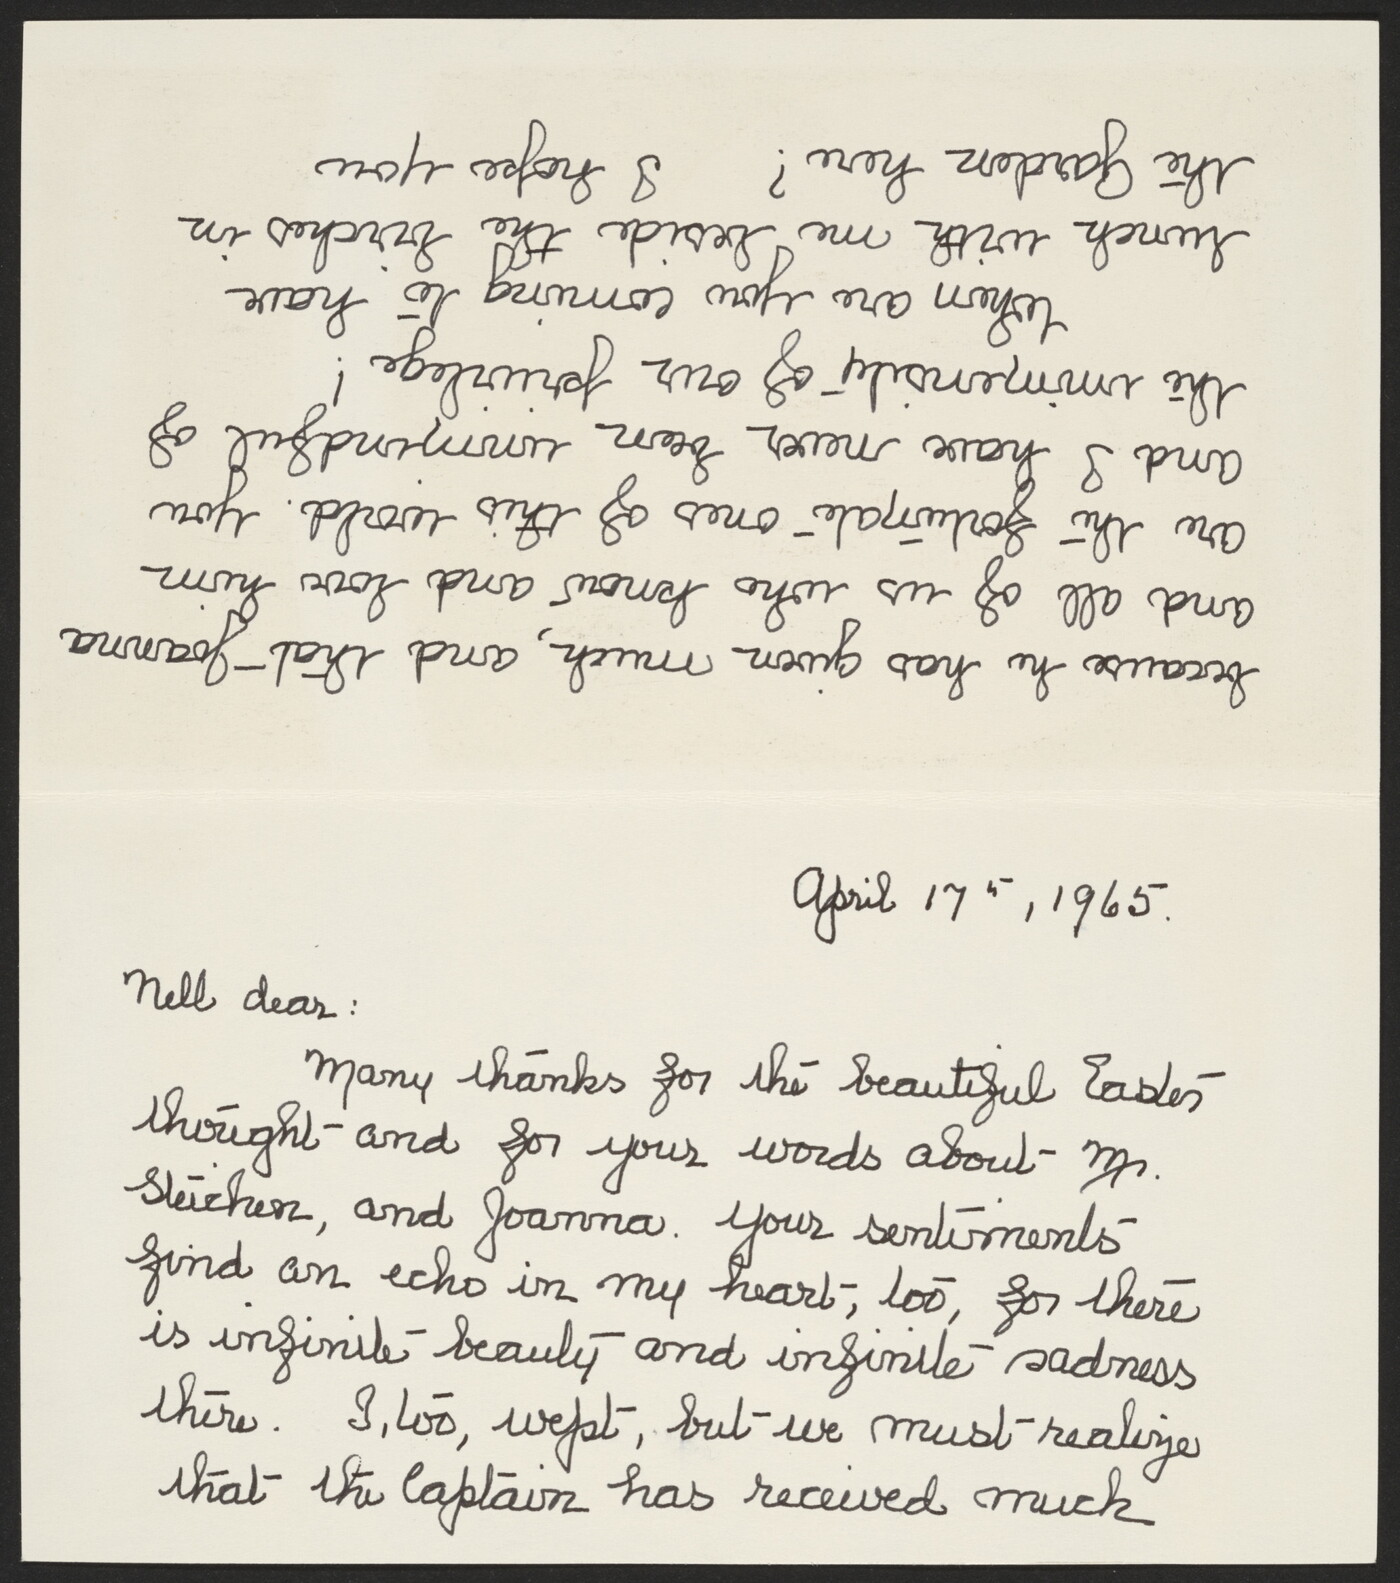 April 17th, 1965.
Nell dear:
Many thanks for the beautiful Easter
thought and for your words about Mr.
Steichen, and Joanna. Your sentiments
find an echo in my heart, too, for there
is infinite beauty and infinite sadness
there. I, too, wept, but we must realize
that the Captain has received much
because he has given much, and that Joanna
and all of us who know and love him
are the fortunate ones of this world. You
and I have never been unmindful of
the immensity of our privilege!
When are you coming to have
lunch with me beside the birches in
the Garden here? I hope you